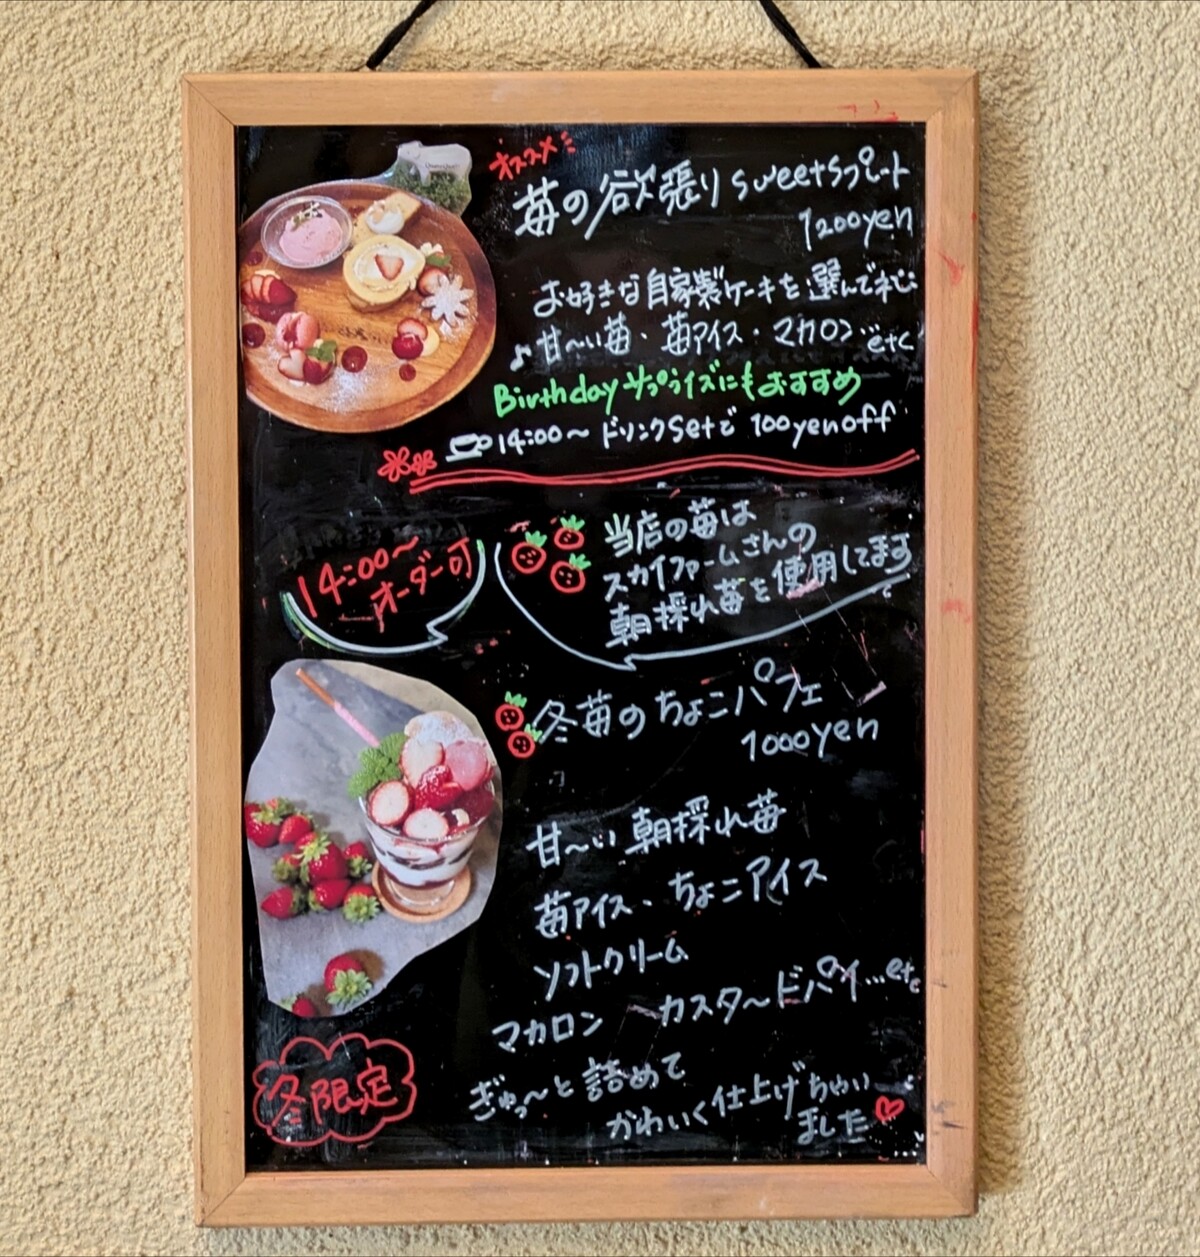 オススメ
苺の欲張りsweetsプレート
1200yen
お好きな自家製ケーキを選んでネ
♪甘〜い苺・苺アイス・マカロン…etc
Birthdayサプライズにもおすすめ
14:00〜 ドリンクsetで 100yenoff
14:00〜
オーダー可
当店の苺は
スカイファームさんの
朝採れ苺を使用してます
冬苺のちょこパフェ
1000yen
甘〜い朝採れ苺
苺アイス・ちょこアイス
ソフトクリーム
マカロン カスタ〜ドパイ…etc
ぎゅっ〜と詰めて
かわいく仕上げちゃい
ました
冬限定